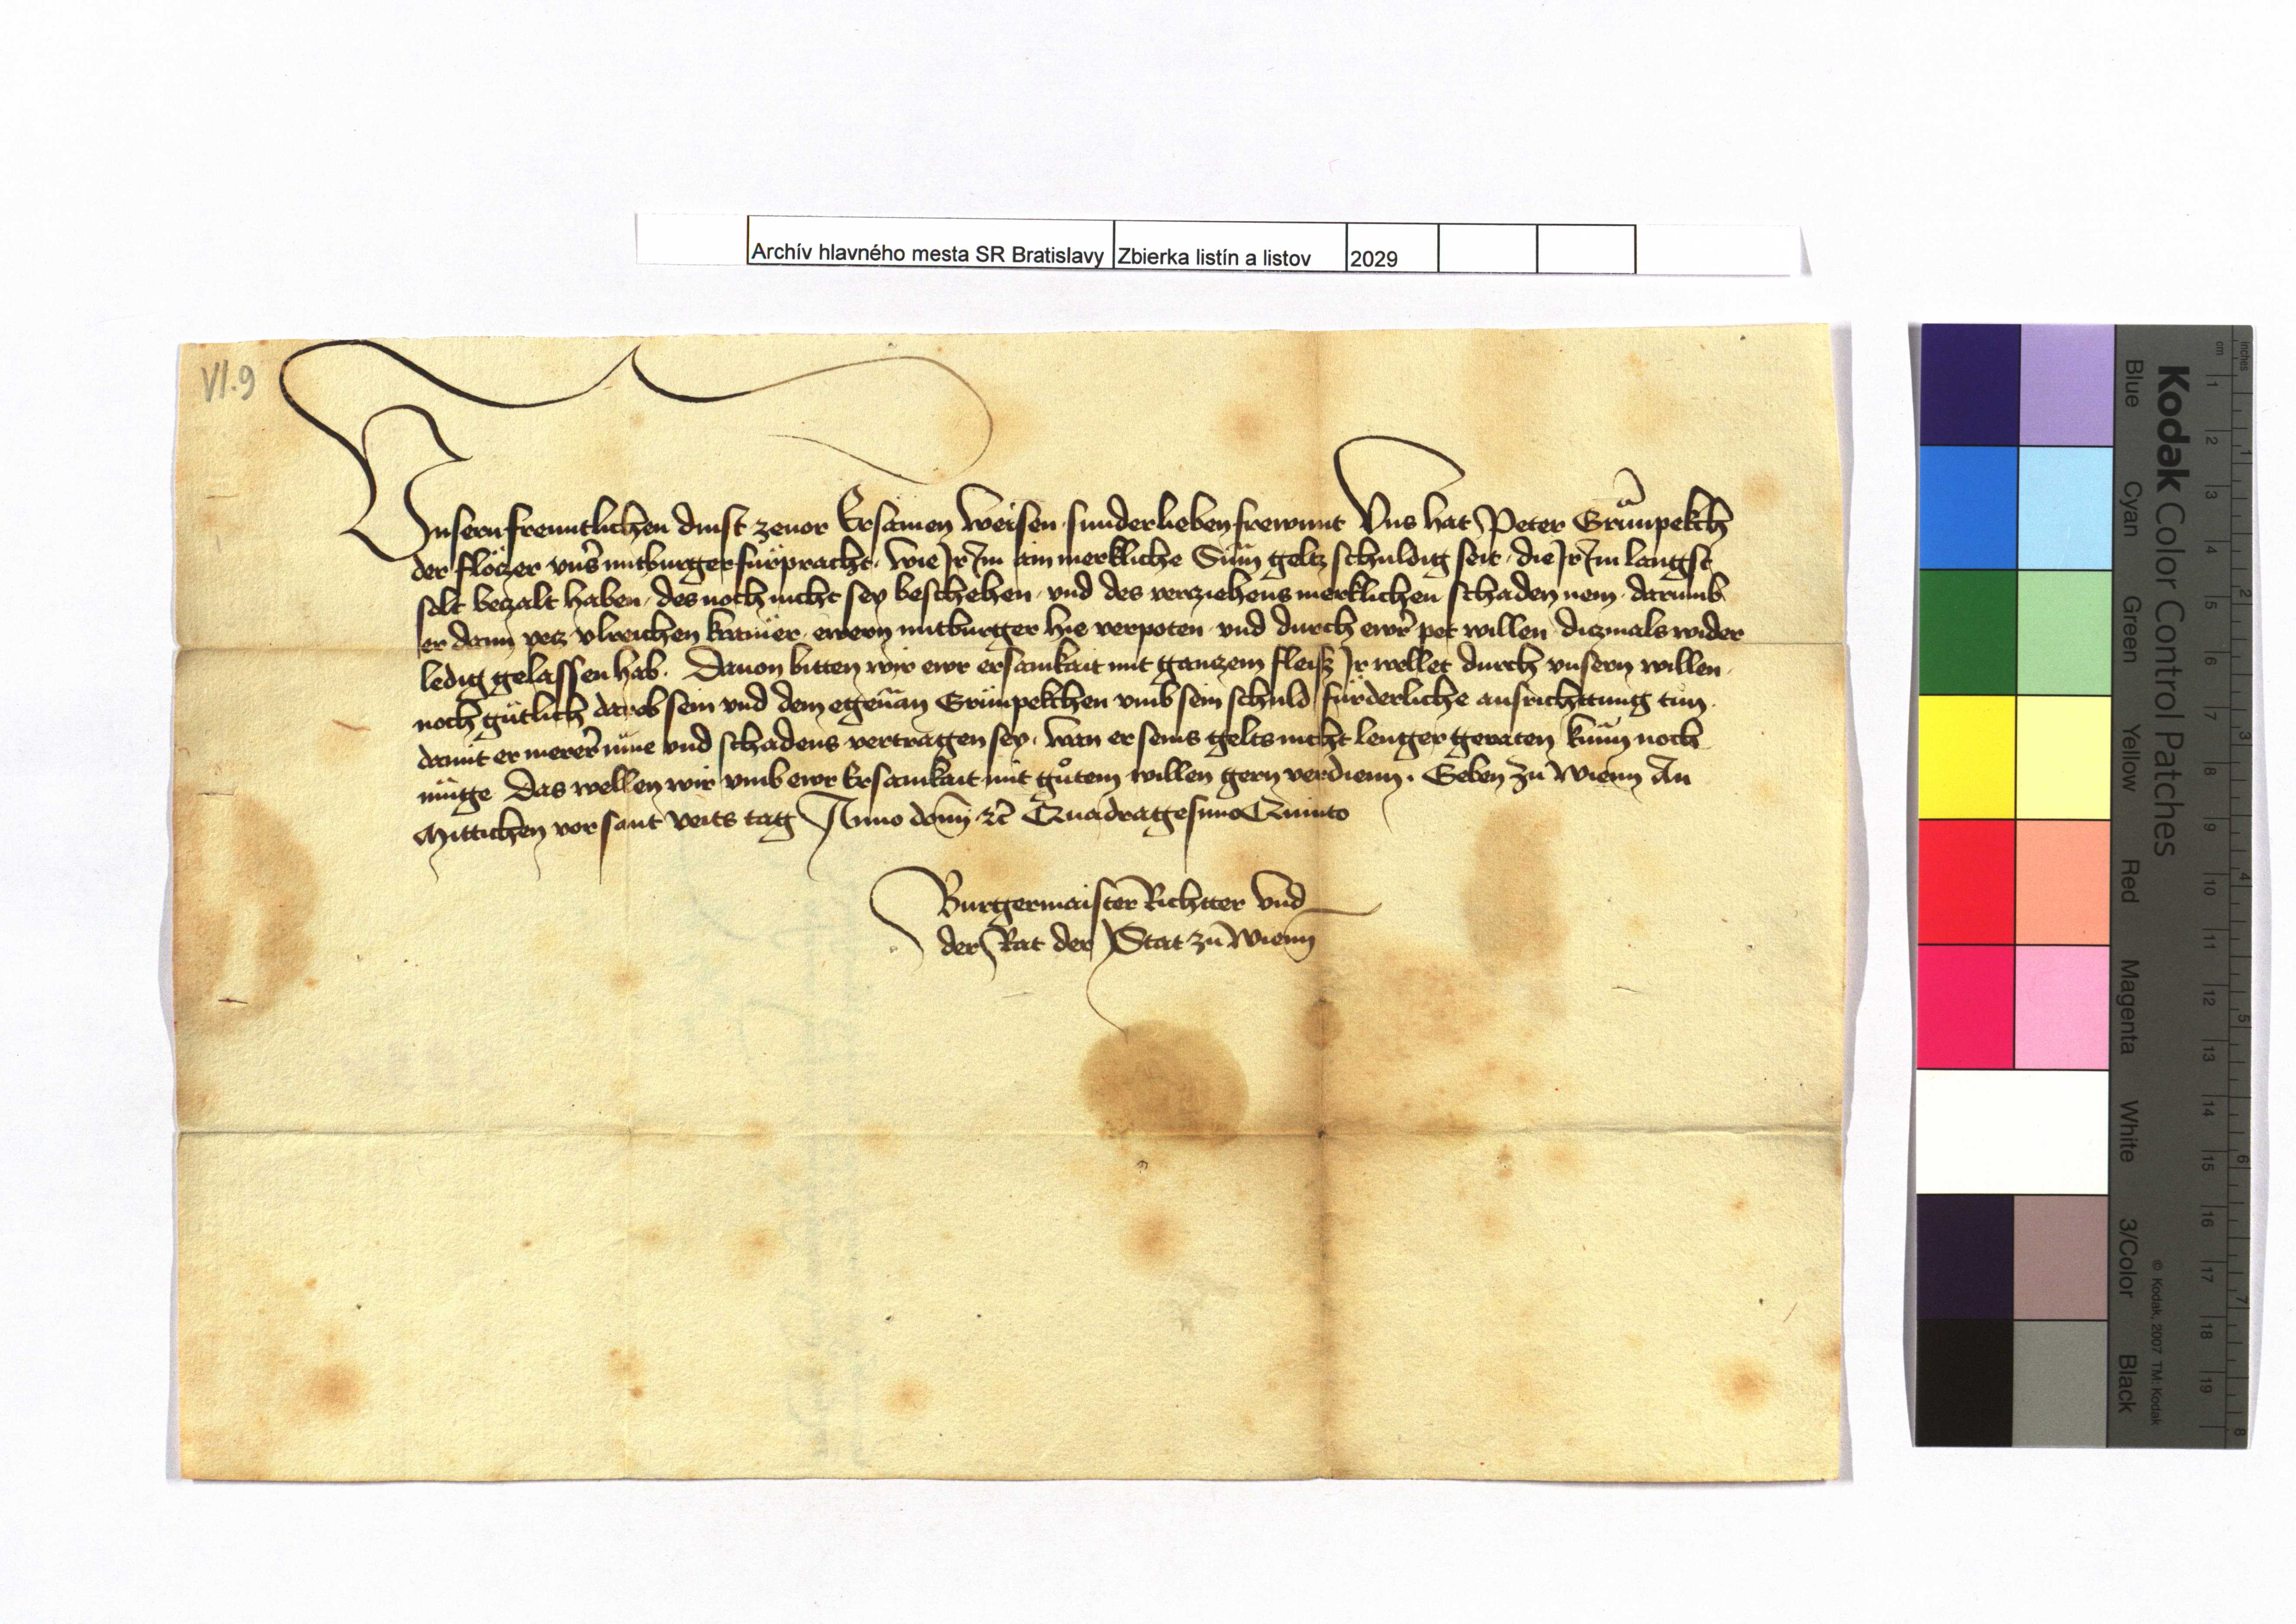 Archív hlavného mesta SR Bratislavy Zbierka listín a listov 2029
VI.9
Unsern freuntlichen dinst zeuor Ersamen Weisen sunder lieben frewnnt Uns hat Peter Grünpekch
der flötzer unser mitburger fürpracht, wie Ir Im ain merkliche Sum geltz schuldig seit, die Ir Im langst
solt bezalt haben, des noch nicht sey beschehen, und des verziehens merklichen schaden nem, darumb
er dann yetz Ulreichen kramer, ewern mitburger hie verpoten und durch ewr pet willen diczmals wider
ledig gelassen hab. Dauon bitten wir ewr ersamkait mit ganczem fleisz Ir wellet durch unsern willen,
noch gütlich darob sein und dem egenan Grünpekchen umb sein schuld fürderliche ausrichttung tun,
damit er merer müe und schadens vertragen sey, wan er seins gelts nicht lenger geraten künn noch
müge Das wellen wir umb ewr Ersamkait mit gůtem willen gern verdienn. Geben zu Wienn An
Mittichen vor sant Veits tag Anno domini etc Quadragesimo Quinto
Burgermaister Richtter und
der Rat der Stat zu Wienn
Kodak Color Control Patches
Blue Cyan Green Yellow Red Magenta White 3/Color Black
© Kodak, 2007 TM: Kodak
inches 1 2 3 4 5 6 7 8
cm 1 2 3 4 5 6 7 8 9 10 11 12 13 14 15 16 17 18 19